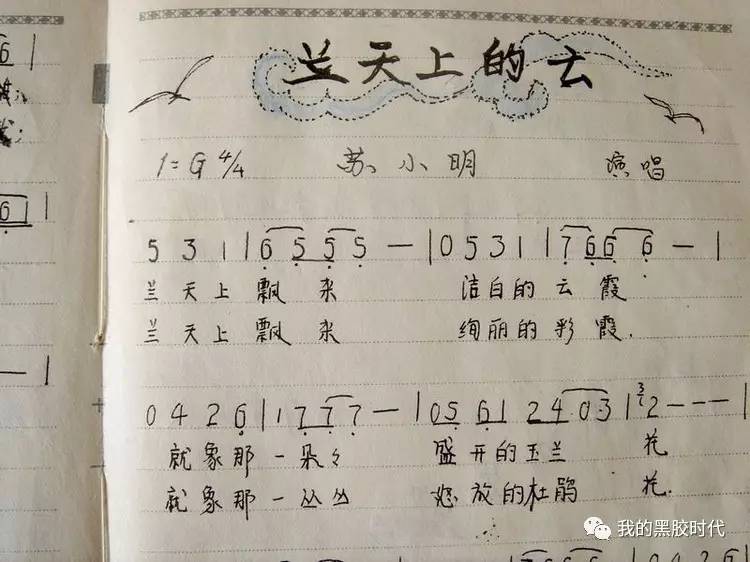 兰天上的云
1=G 4/4 苏小明 演唱
5 3 1 | 6 5 5 5 — | 0 5 3 1 | 7 6 6 6 — |
兰天上飘来 洁白的云霞
兰天上飘来 绚丽的彩霞.
0 4 2 6 | 1 7 7 7 — | 0 5 6 1 2 4 0 3 | 3 2 - - - |
就象那一朵々 盛开的玉兰花
就象那一丛丛 怒放的杜鹃花.
我的黑胶时代